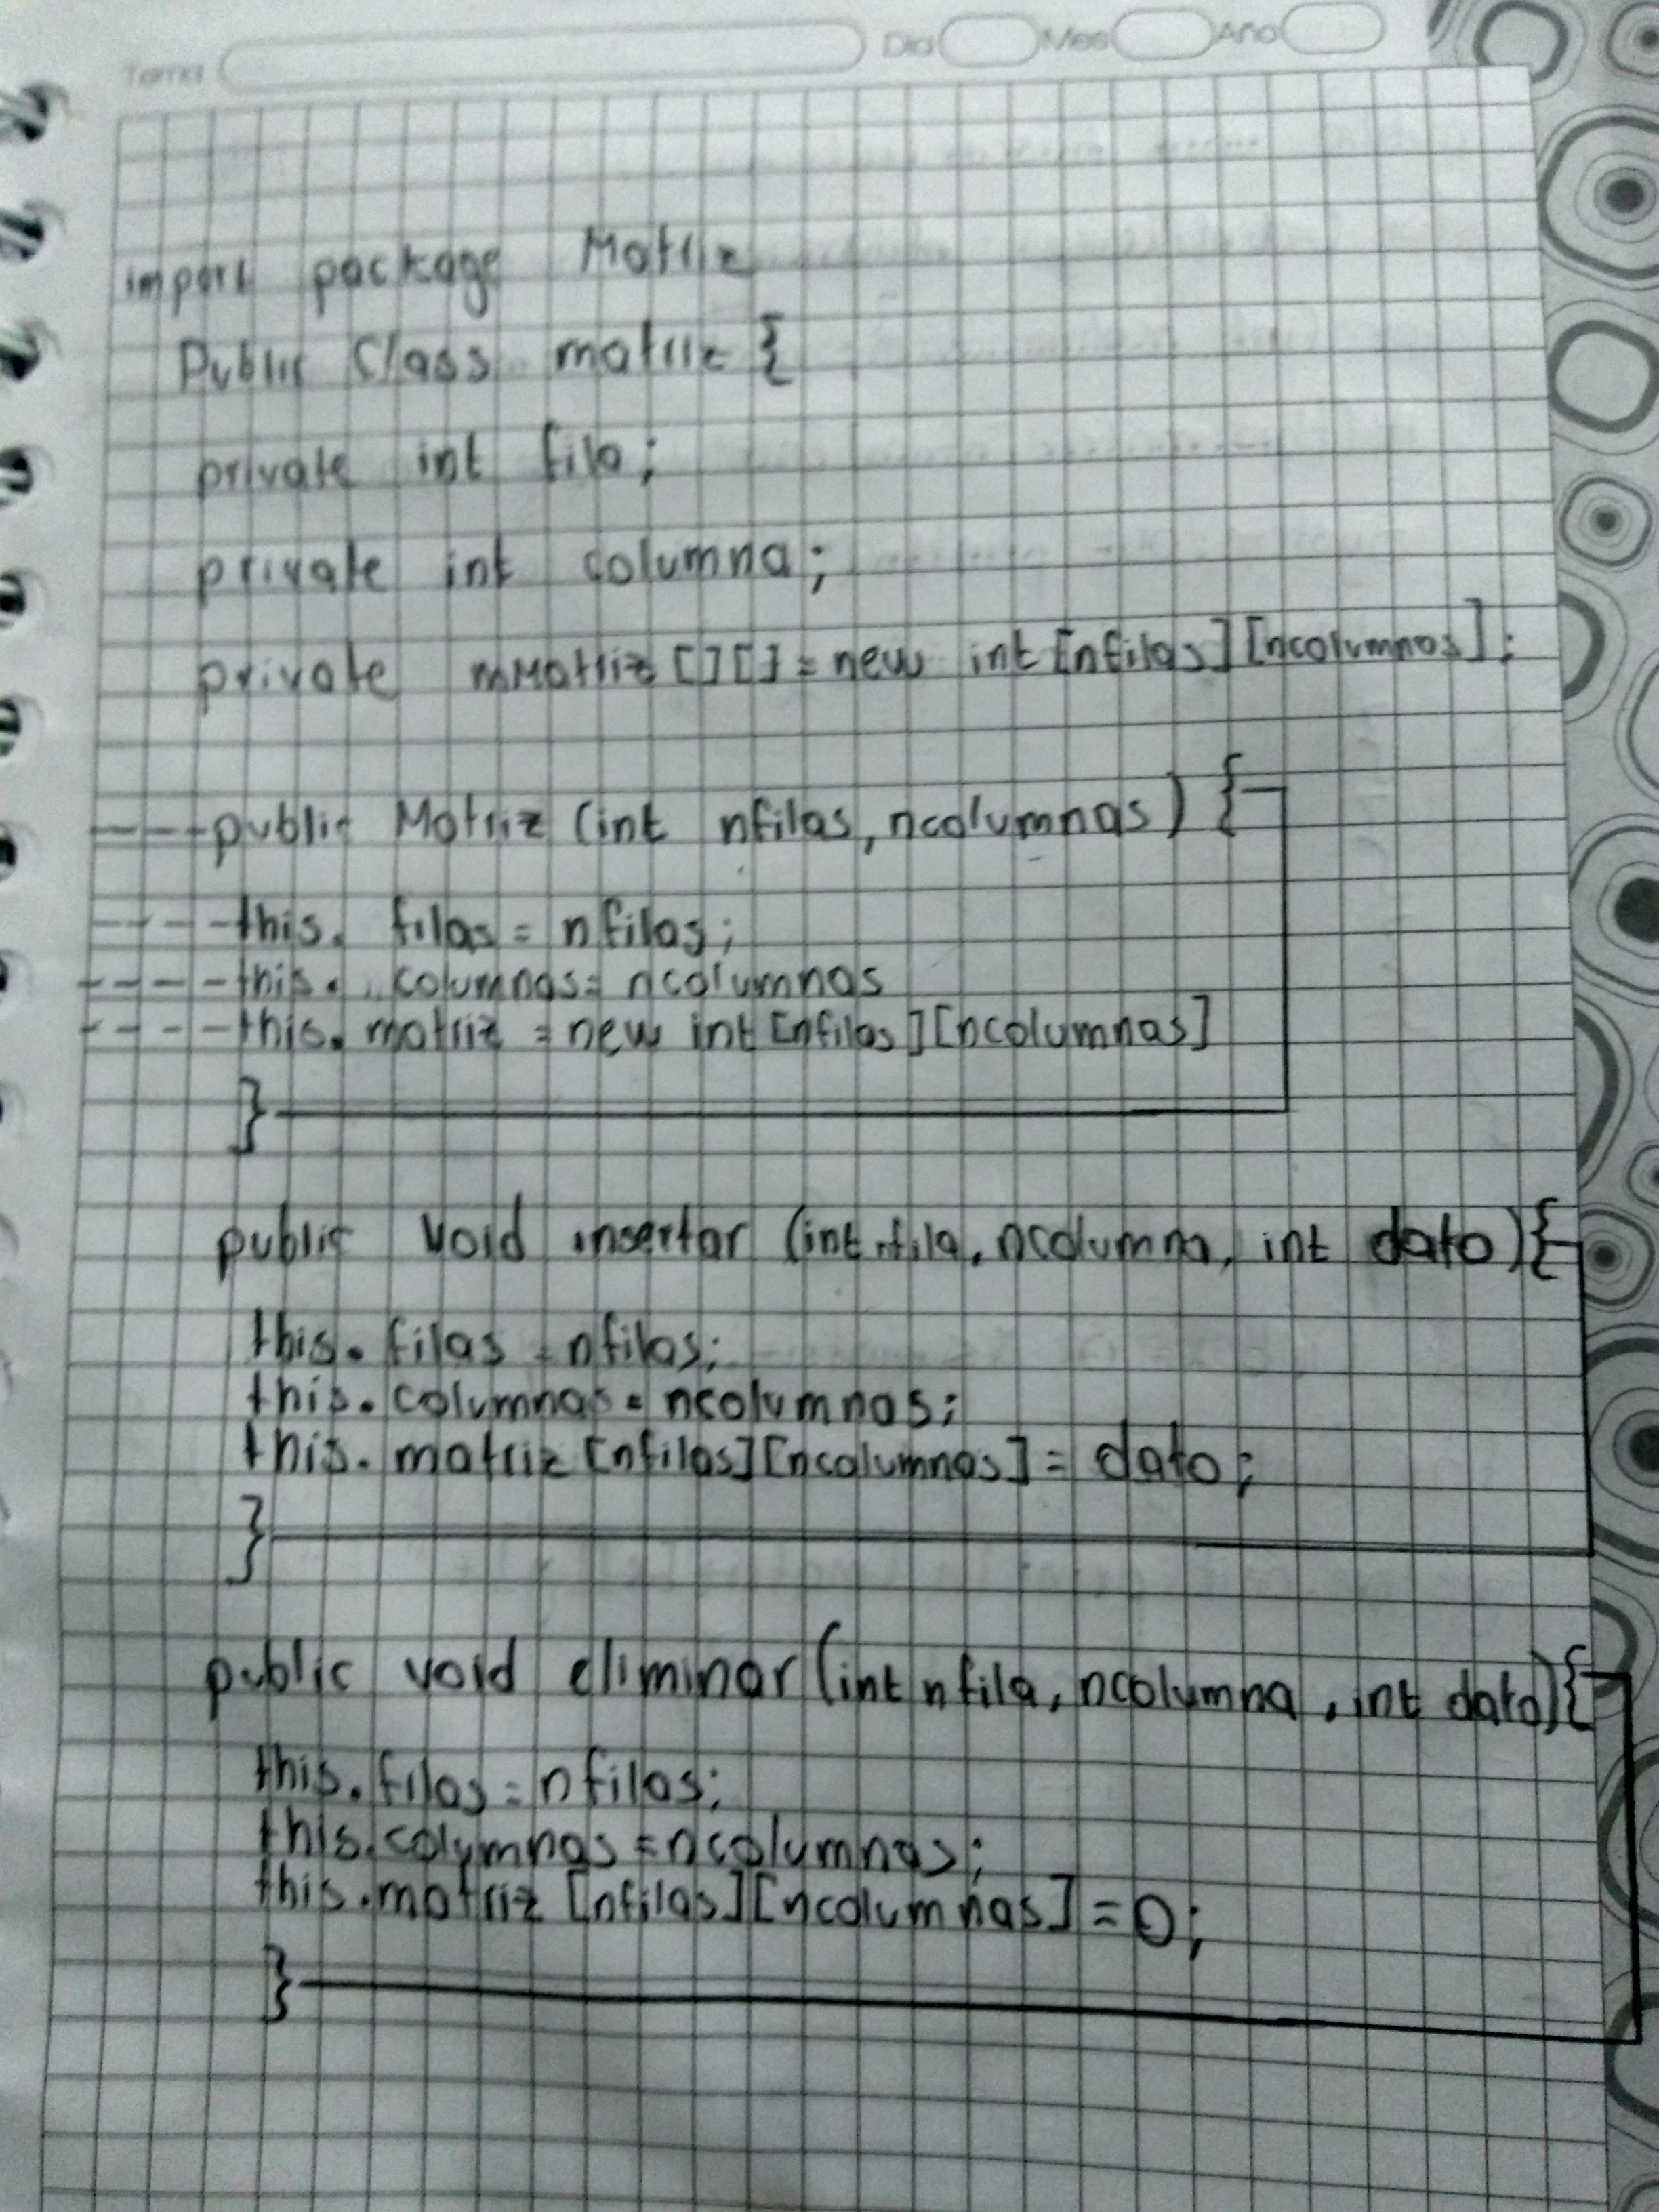 Tema Dia Mes Año
import package Matriz
Public Class matriz {
private int fila;
private int columna;
private mMatriz [][] = new int [nfilas][ncolumnas];
public Matriz (int nfilas, ncolumnas) {
this. filas = nfilas;
this. columnas = ncolumnas
this. matriz = new int [nfilas][ncolumnas]
}
public void insertar (int nfila, ncolumna, int dato){
this. filas = nfilas;
this. columnas = ncolumnas;
this. matriz [nfilas][ncolumnas] = dato;
}
public void eliminar (int nfila, ncolumna, int dato){
this. filas = nfilas;
this. columnas = ncolumnas;
this. matriz [nfilas][ncolumnas] = 0;
}